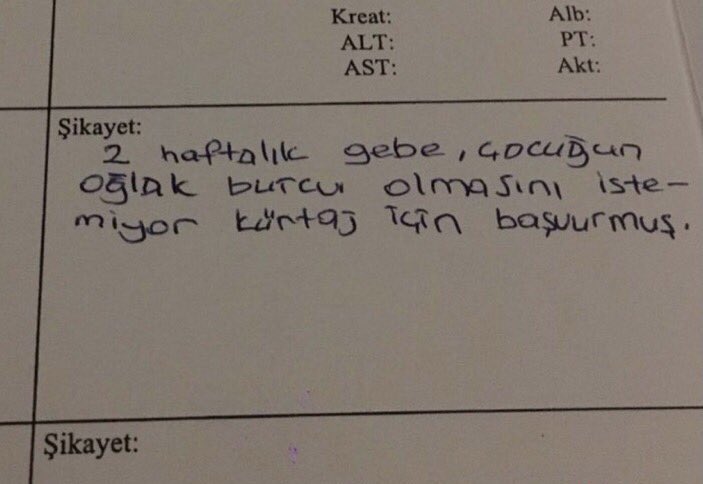 Kreat: Alb:
ALT: PT:
AST: Akt:
Şikayet:
2 haftalık gebe, çocuğun
oğlak burcu olmasını iste-
miyor kürtaj için başvurmuş.
Şikayet: